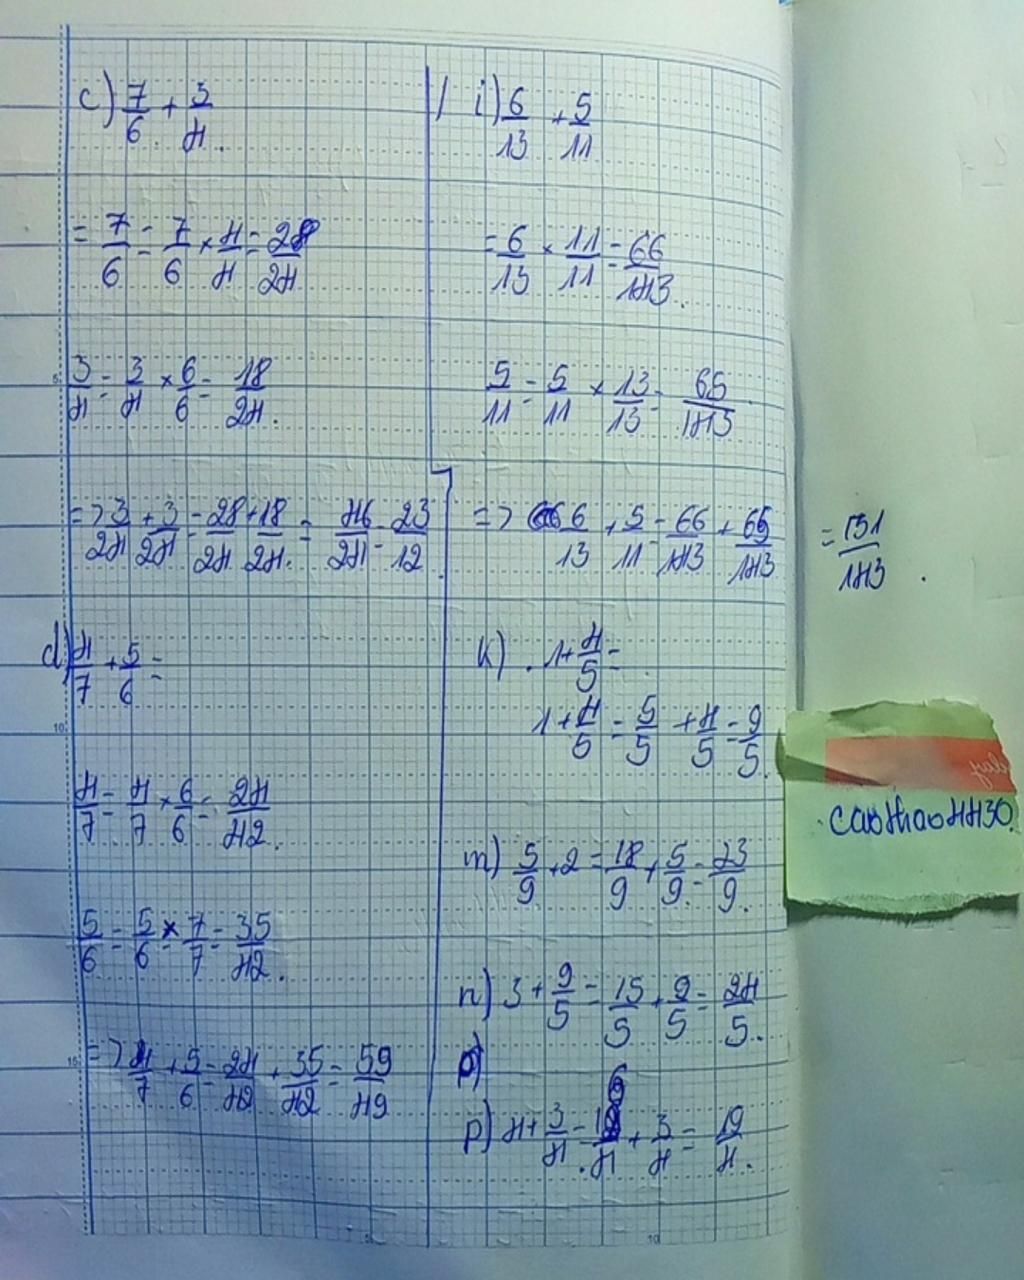 c) 7/6 + 3/4.
= 7/6 = 7/6 × 4/4 = 28/24
3/4 = 3/4 × 6/6 = 18/24.
=> 3/24 + 3/24 = 28/24 + 18/24. = 46/24 = 23/12
d) 4/7 + 5/6 =
4/7 = 4/7 × 6/6 = 24/42.
5/6 = 5/6 × 7/7 = 35/42.
=> 4/7 + 5/6 = 24/42 + 35/42 = 59/49
i) 6/13 + 5/11
= 6/13 × 11/11 = 66/143.
5/11 = 5/11 × 13/13 = 65/143
=> 6/13 + 5/11 = 66/143 + 65/143 = 131/143.
k) . 1 + 4/5 =
1 + 4/5 = 5/5 + 4/5 = 9/5.
m) 5/9 + 2 = 18/9 + 5/9 = 23/9.
n) 3 + 9/5 = 15/5 + 9/5 = 24/5.
p) 4 + 3/4 = 16/4 + 3/4 = 19/4.
day
caothao4430.